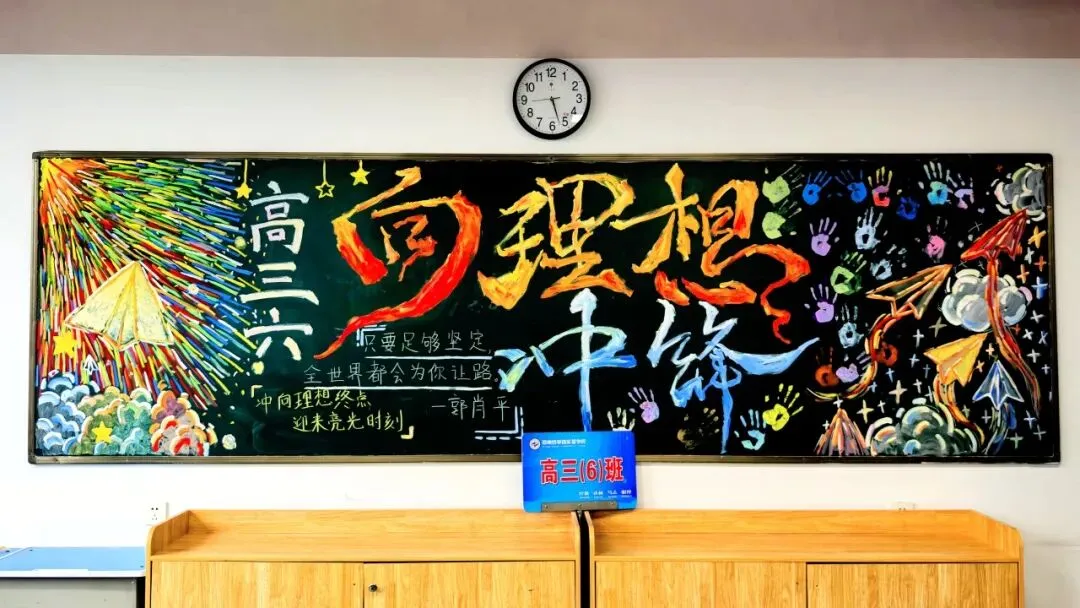 12
1
2
3
4
5
6
7
8
9
10
11
高三六
向理想
冲锋
只要足够坚定
全世界都会为你让路
一郭肖平
「冲向理想终点
迎来亮光时刻」
高三(6)班